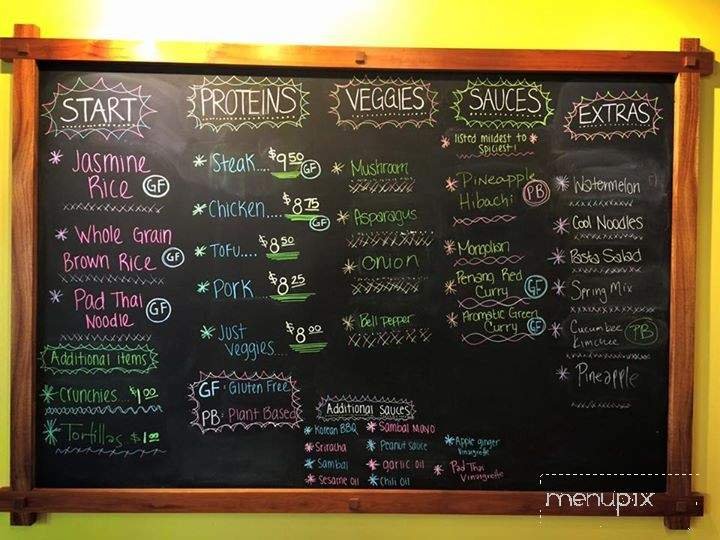 START
* Jasmine
Rice GF
* Whole Grain
Brown Rice GF
* Pad Thai
Noodle GF
Additional items
* Crunchies.. $1.00
* Tortillas $1.00
PROTEINS
* Steak.... $9.50 GF
* Chicken... $8.75 GF
* Tofu.... $8.50
* Pork $8.25
* Just
Veggies.... $8.00
GF: Gluten Free
PB: Plant Based
VEGGIES
* Mushroom
* Asparagus
* Onion
* Bell Pepper
SAUCES
* listed mildest to *
spiciest!
* Pineapple
Hibachi PB
* Mongolian
* Penang Red
Curry GF
* Aromatic Green
Curry GF
EXTRAS
* Watermelon
* Cool Noodles
* Pasta Salad
* Spring Mix
* Cucumber
Kimchee PB
* Pineapple
Additional sauces
* Korean BBQ
* Sriracha
* Sambal
* Sesame oil
* Sambal MAYO
* Peanut sauce
* garlic oil
* Chili oil
* Apple ginger
Vinaigrette
* Pad Thai
Vinaigrette
menupix